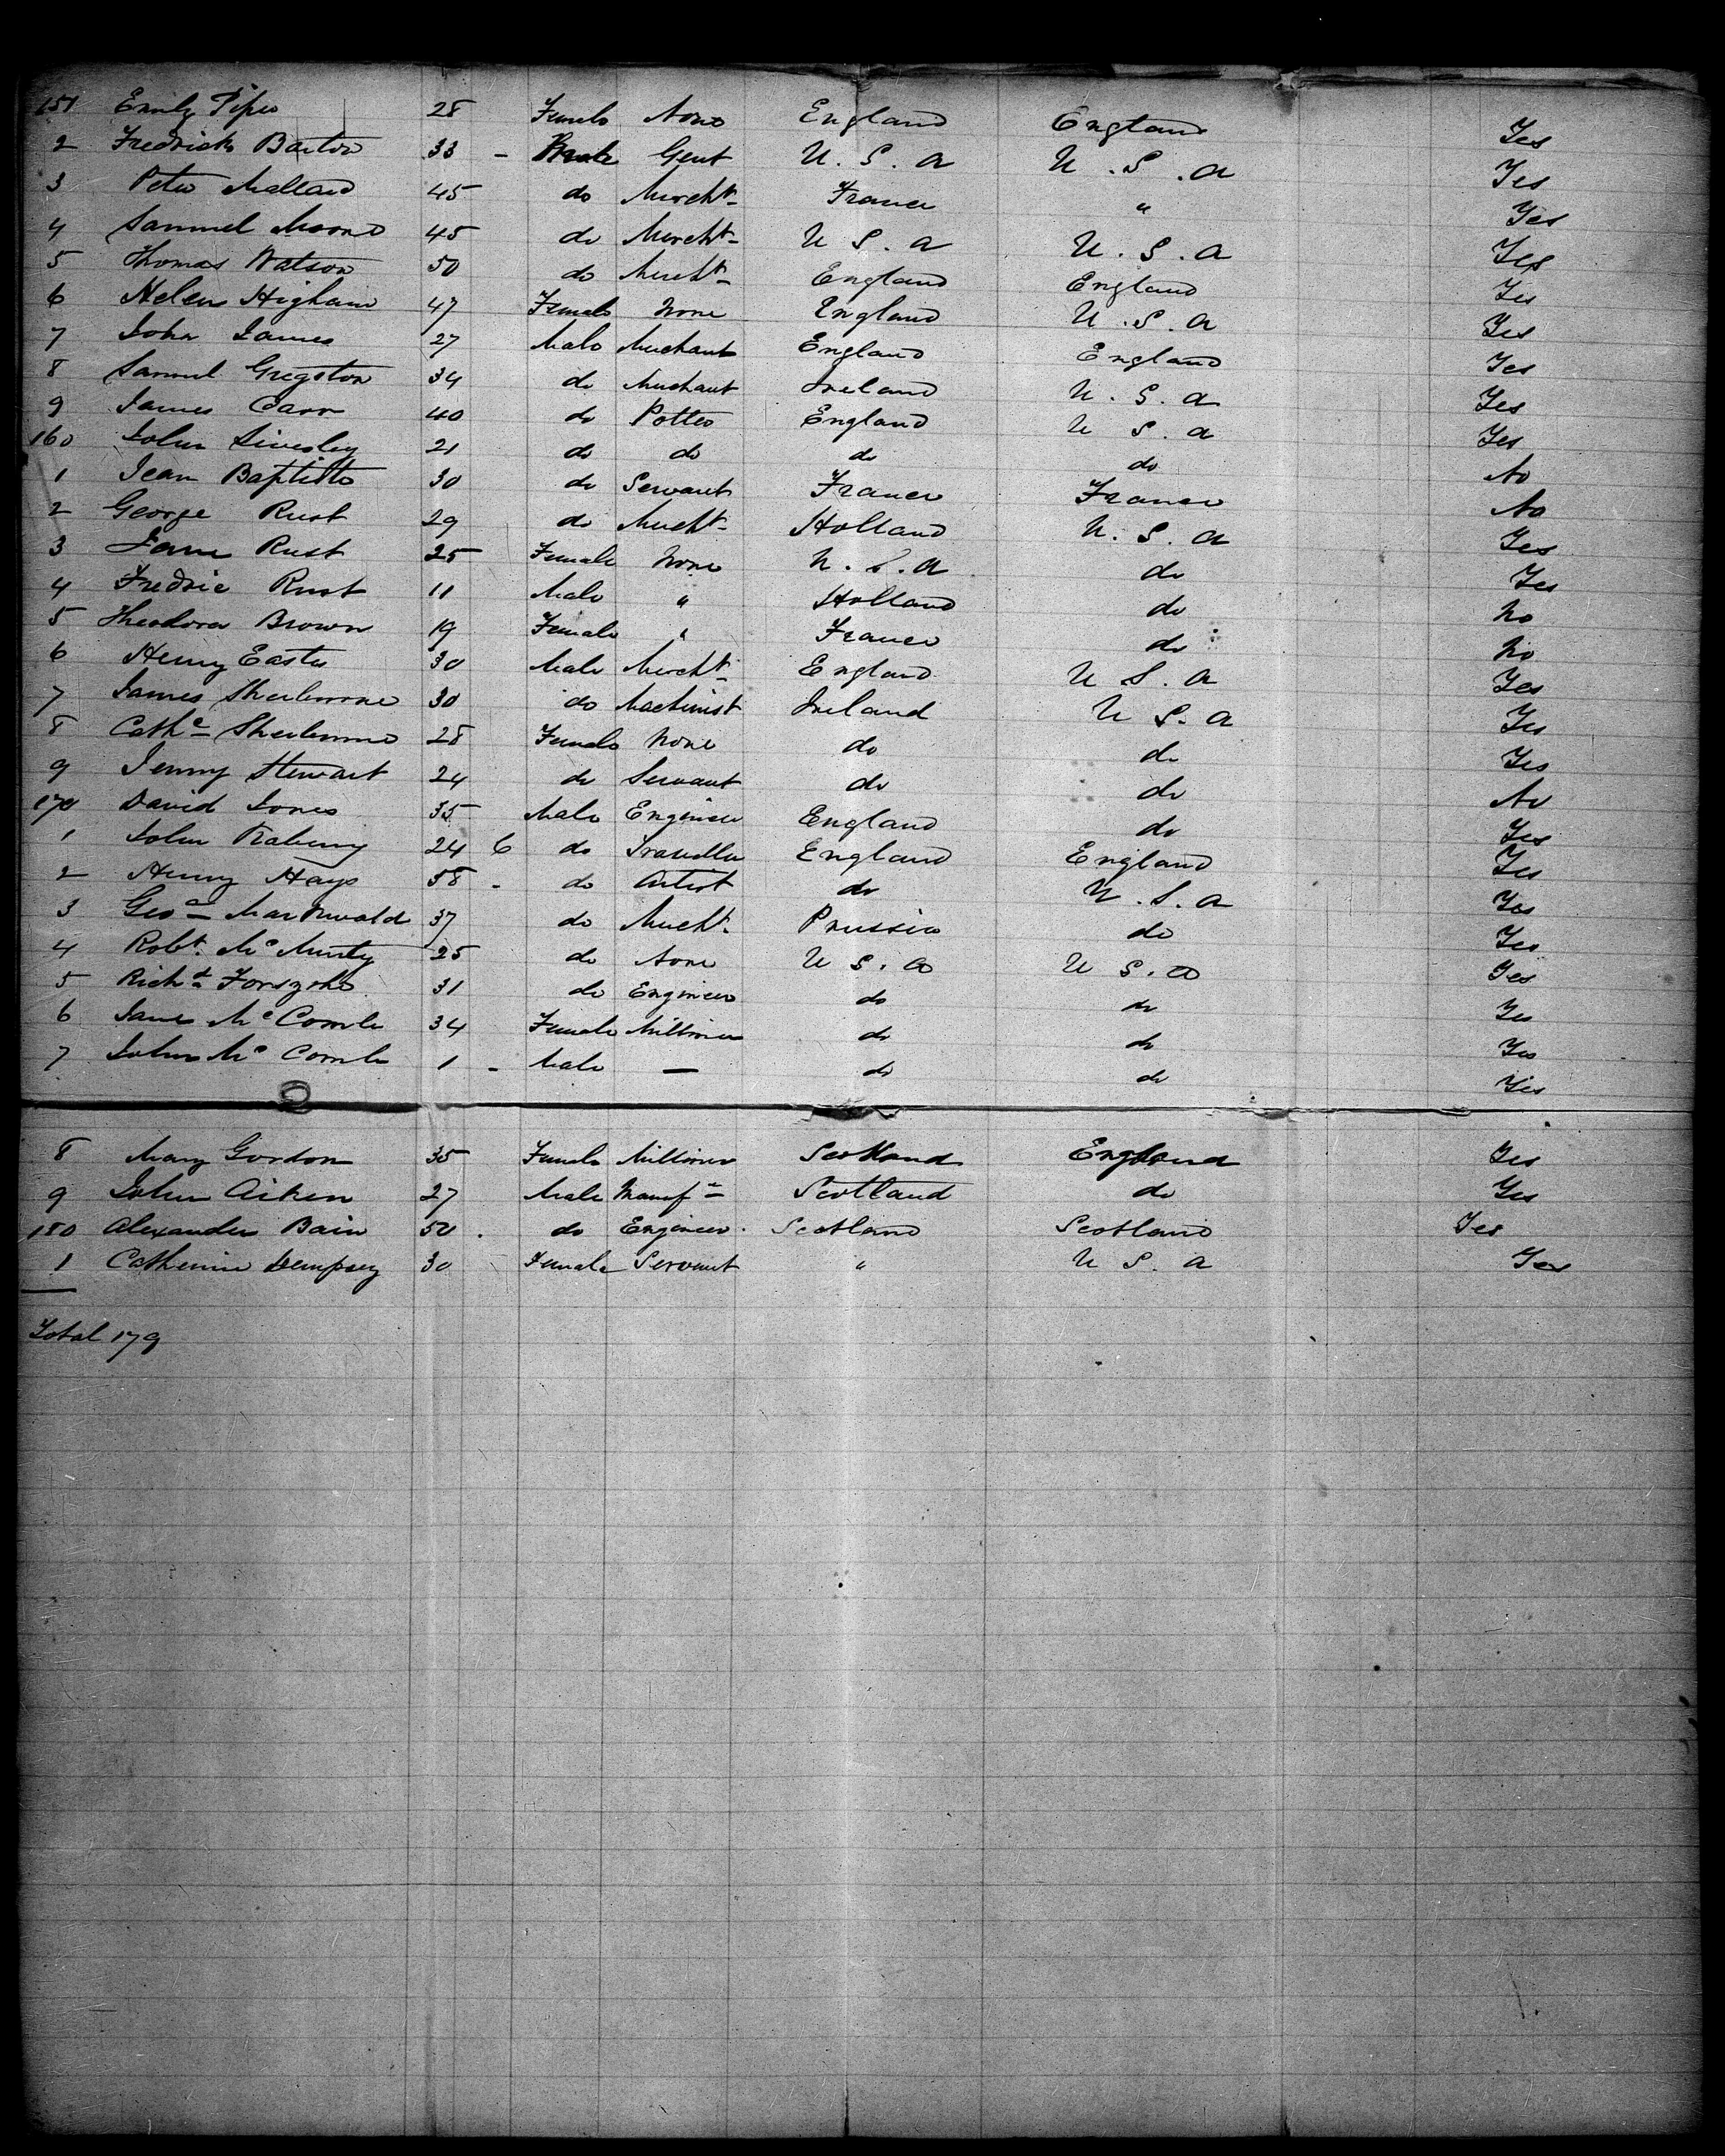 151 Emily Piper 28 Female None England England Yes
2 Fredrick Barton 33 - Male Gent U.S.A U.S.A Yes
3 Peter Mallard 45 do Mercht France " Yes
4 Samuel Moore 45 do Mercht U S. A U.S.A Yes
5 Thomas Watson 50 do Mercht England England Yes
6 Helen Higham 47 Female None England U.S.A Yes
7 John James 27 Male Merchant England England Yes
8 Samuel Gregston 34 do Merchant Ireland U.S.A Yes
9 James Carr 40 do Potter England U S. A Yes
160 John Livesley 21 do do do do No
1 Jean Baptiste 30 do Servant France France No
2 George Rust 29 do Mercht Holland U.S.A Yes
3 Jane Rust 25 Female None U.S.A do Yes
4 Fredric Rust 11 Male " Holland do No
5 Theodora Brown 19 Female " France do No
6 Henry Easter 30 Male Mercht England U S. A Yes
7 James Sherbourne 30 do Machinist Ireland U S. A Yes
8 Cathe Sherbourne 28 Female None do do Yes
9 Jenny Stewart 24 do Servant do do No
170 David Jones 35 Male Engineer England do Yes
1 John 24 6 do Traveller England England Yes
2 Henry Hays 58 - do Artist do U.S.A Yes
3 Geo 37 do Mercht Prussia do Yes
4 Robt McMurty 25 do None U S. A U S. A Yes
5 Richd Forsyth 31 do Engineer do do Yes
6 Jane McComb 34 Female Milliner do do Yes
7 John McComb 1 - Male — do do Yes
8 Mary Gordon 35 Female Milliner Scotland England Yes
9 John Aiken 27 Male Manufr Scotland do Yes
180 Alexander Bain 50 . do Engineer. Scotland Scotland Yes
1 Catherine Dempsey 30 Female Servant " U S. A Yes
Total 179